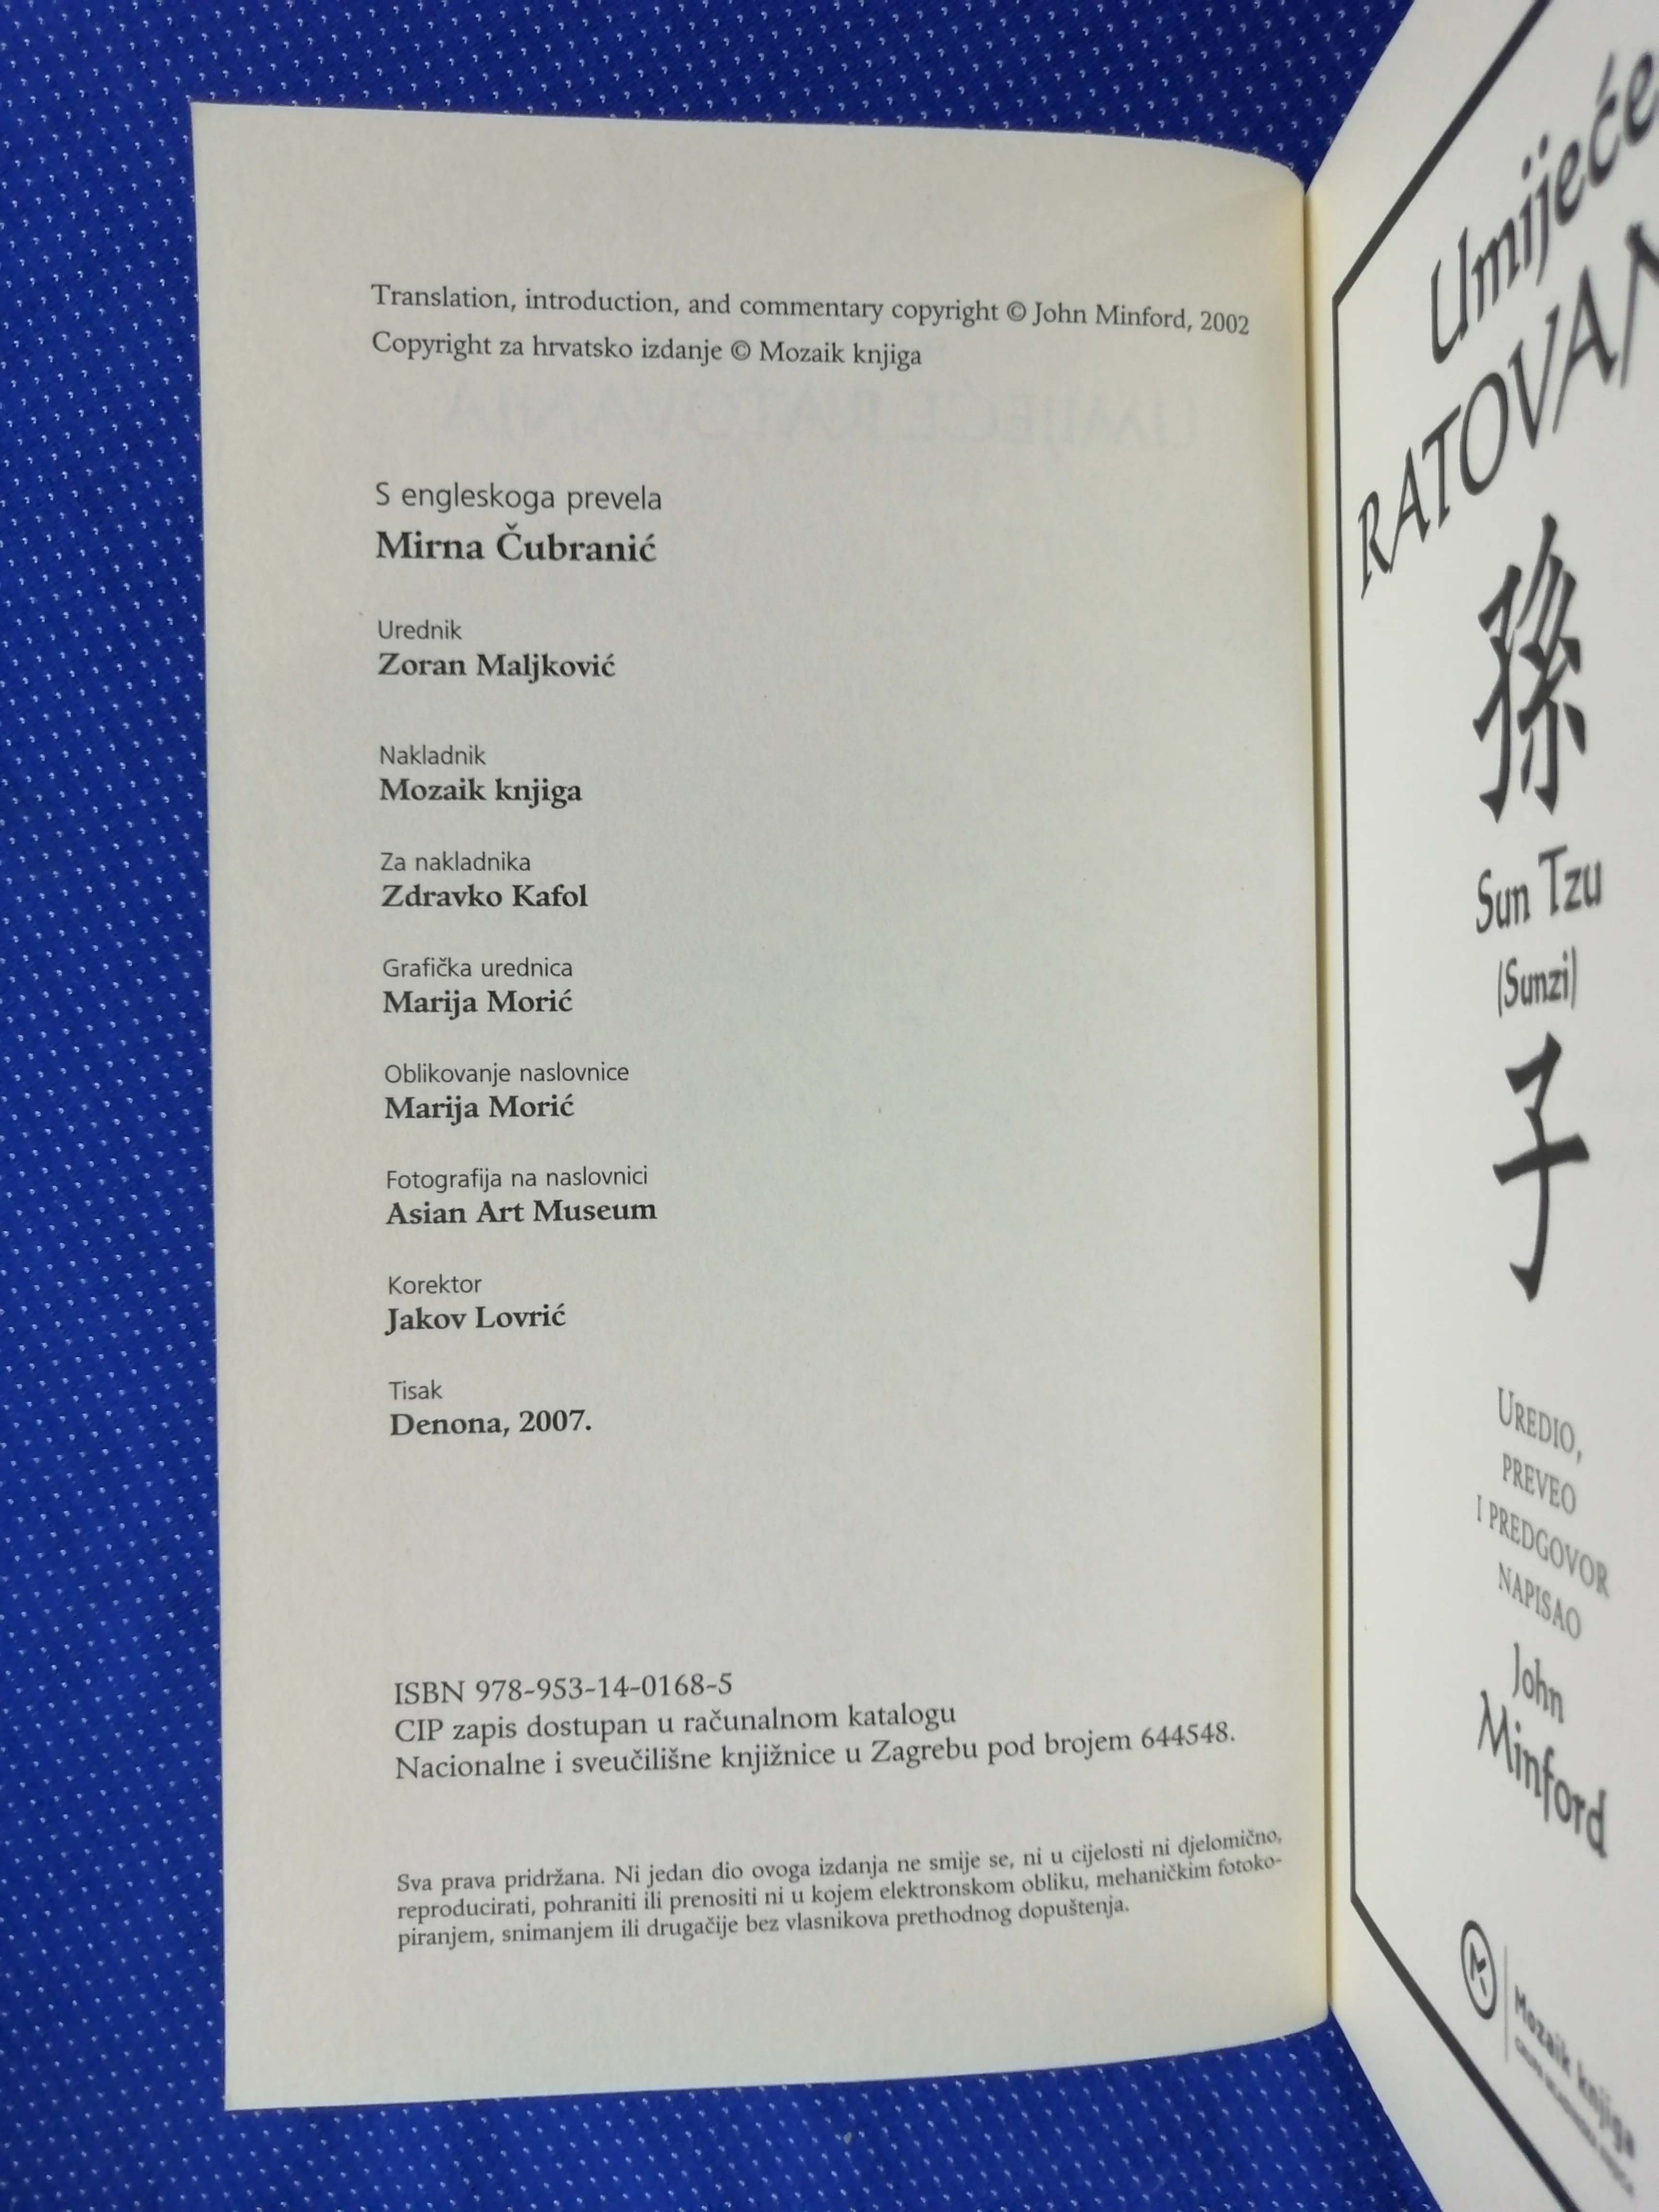 Translation, introduction, and commentary copyright © John Minford, 2002
Copyright za hrvatsko izdanje © Mozaik knjiga
S engleskoga prevela
Mirna Čubranić
Urednik
Zoran Maljković
Nakladnik
Mozaik knjiga
Za nakladnika
Zdravko Kafol
Grafička urednica
Marija Morić
Oblikovanje naslovnice
Marija Morić
Fotografija na naslovnici
Asian Art Museum
Korektor
Jakov Lovrić
Tisak
Denona, 2007.
ISBN 978-953-14-0168-5
CIP zapis dostupan u računalnom katalogu
Nacionalne i sveučilišne knjižnice u Zagrebu pod brojem 644548.
Sva prava pridržana. Ni jedan dio ovoga izdanja ne smije se, ni u cijelosti ni djelomično,
reproducirati, pohraniti ili prenositi ni u kojem elektronskom obliku, mehaničkim fotoko-
piranjem, snimanjem ili drugačije bez vlasnikova prethodnog dopuštenja.
Umijeće
RATOVAN
孫
Sun Tzu
(Sunzi)
子
UREDIO,
PREVEO
I PREDGOVOR
NAPISAO
John
Minford
Mozaik knjiga